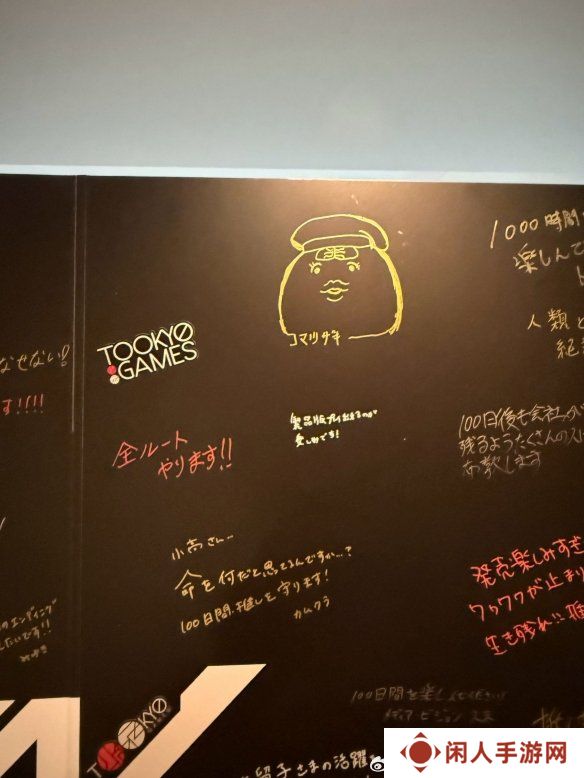 1000時間
楽しんで
人類
コマツザキ
TOOKYO
GAMES
なせない!
す!!!!
全ルート
やります!!
製品版プレイ出来るのが
楽しみです!
100日後も会社が
残るようたくさんの人に
布教します
小高さん…
命を何だと思ってるんですか…?
100日間、推しを守ります!
カムクラ
発売楽しみすぎ
ワクワクが止まり
生き残れ!!
のエンディング
たいです!!
100日間を楽しんでください
メディア・ビジョン
TOOKYO
留子さまの活躍
闲人手游网